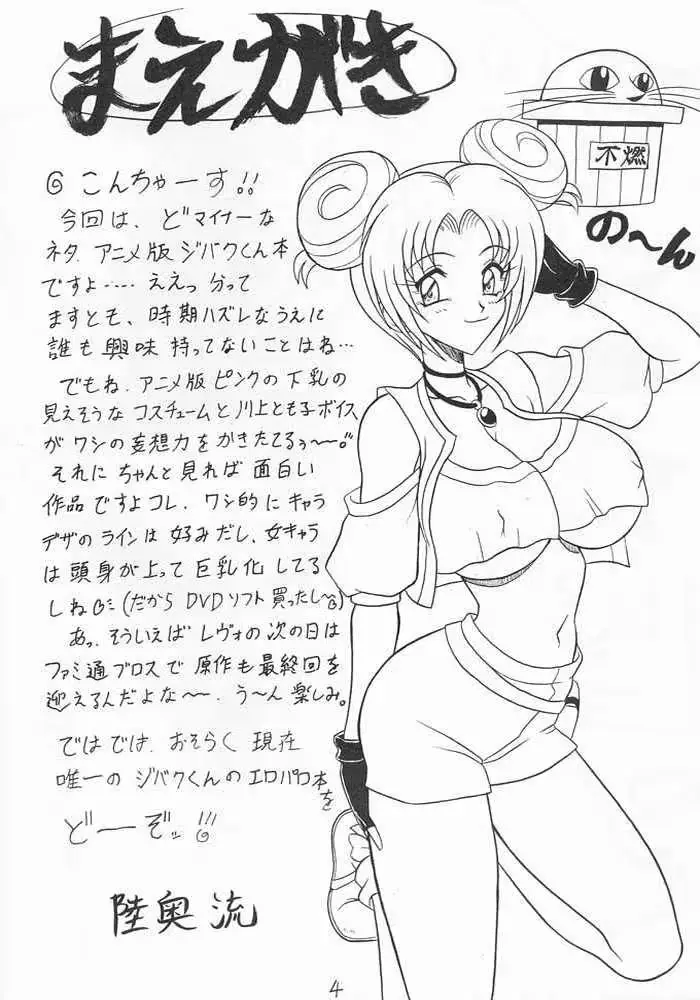 まえがき
こんちゃーす!!
今回は、どマイナーな
ネタ、アニメ版ジバクくん本
ですよ……ええっ分って
ますとも、時期ハズレなうえに
誰も興味持ってないことはね…
でもね、アニメ版ピンクの下乳の
見えそうなコスチュームと川上とも子ボイス
がワシの妄想力をかきたてるぅ〜〜
それにちゃんと見れば面白い
作品ですよコレ、ワシ的にキャラ
デザのラインは好みだし、女キャラ
は頭身が上って巨乳化してる
しね(だからDVDソフト買ったし〜)
あっ、そういえばレヴォの次の日は
ファミ通ブロスで原作も最終回を
迎えるんだよな〜〜、う〜ん楽しみ。
ではでは、おそらく現在
唯一のジバクくんのエロパロ本を
ど――ぞッ!!!
陸奥流
不燃
の〜ん
4